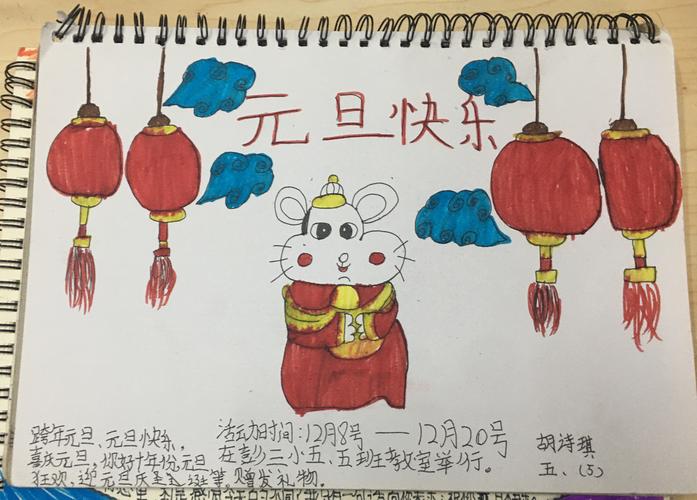 元旦快乐
跨年元旦、元旦快乐。
喜庆元旦,你好十年份,元旦
狂欢,迎元旦庆 等,赠发礼物。
活动时间:12月8号——12月20号
在彭三小五、五班教室举行。
胡诗琪
五、(5)